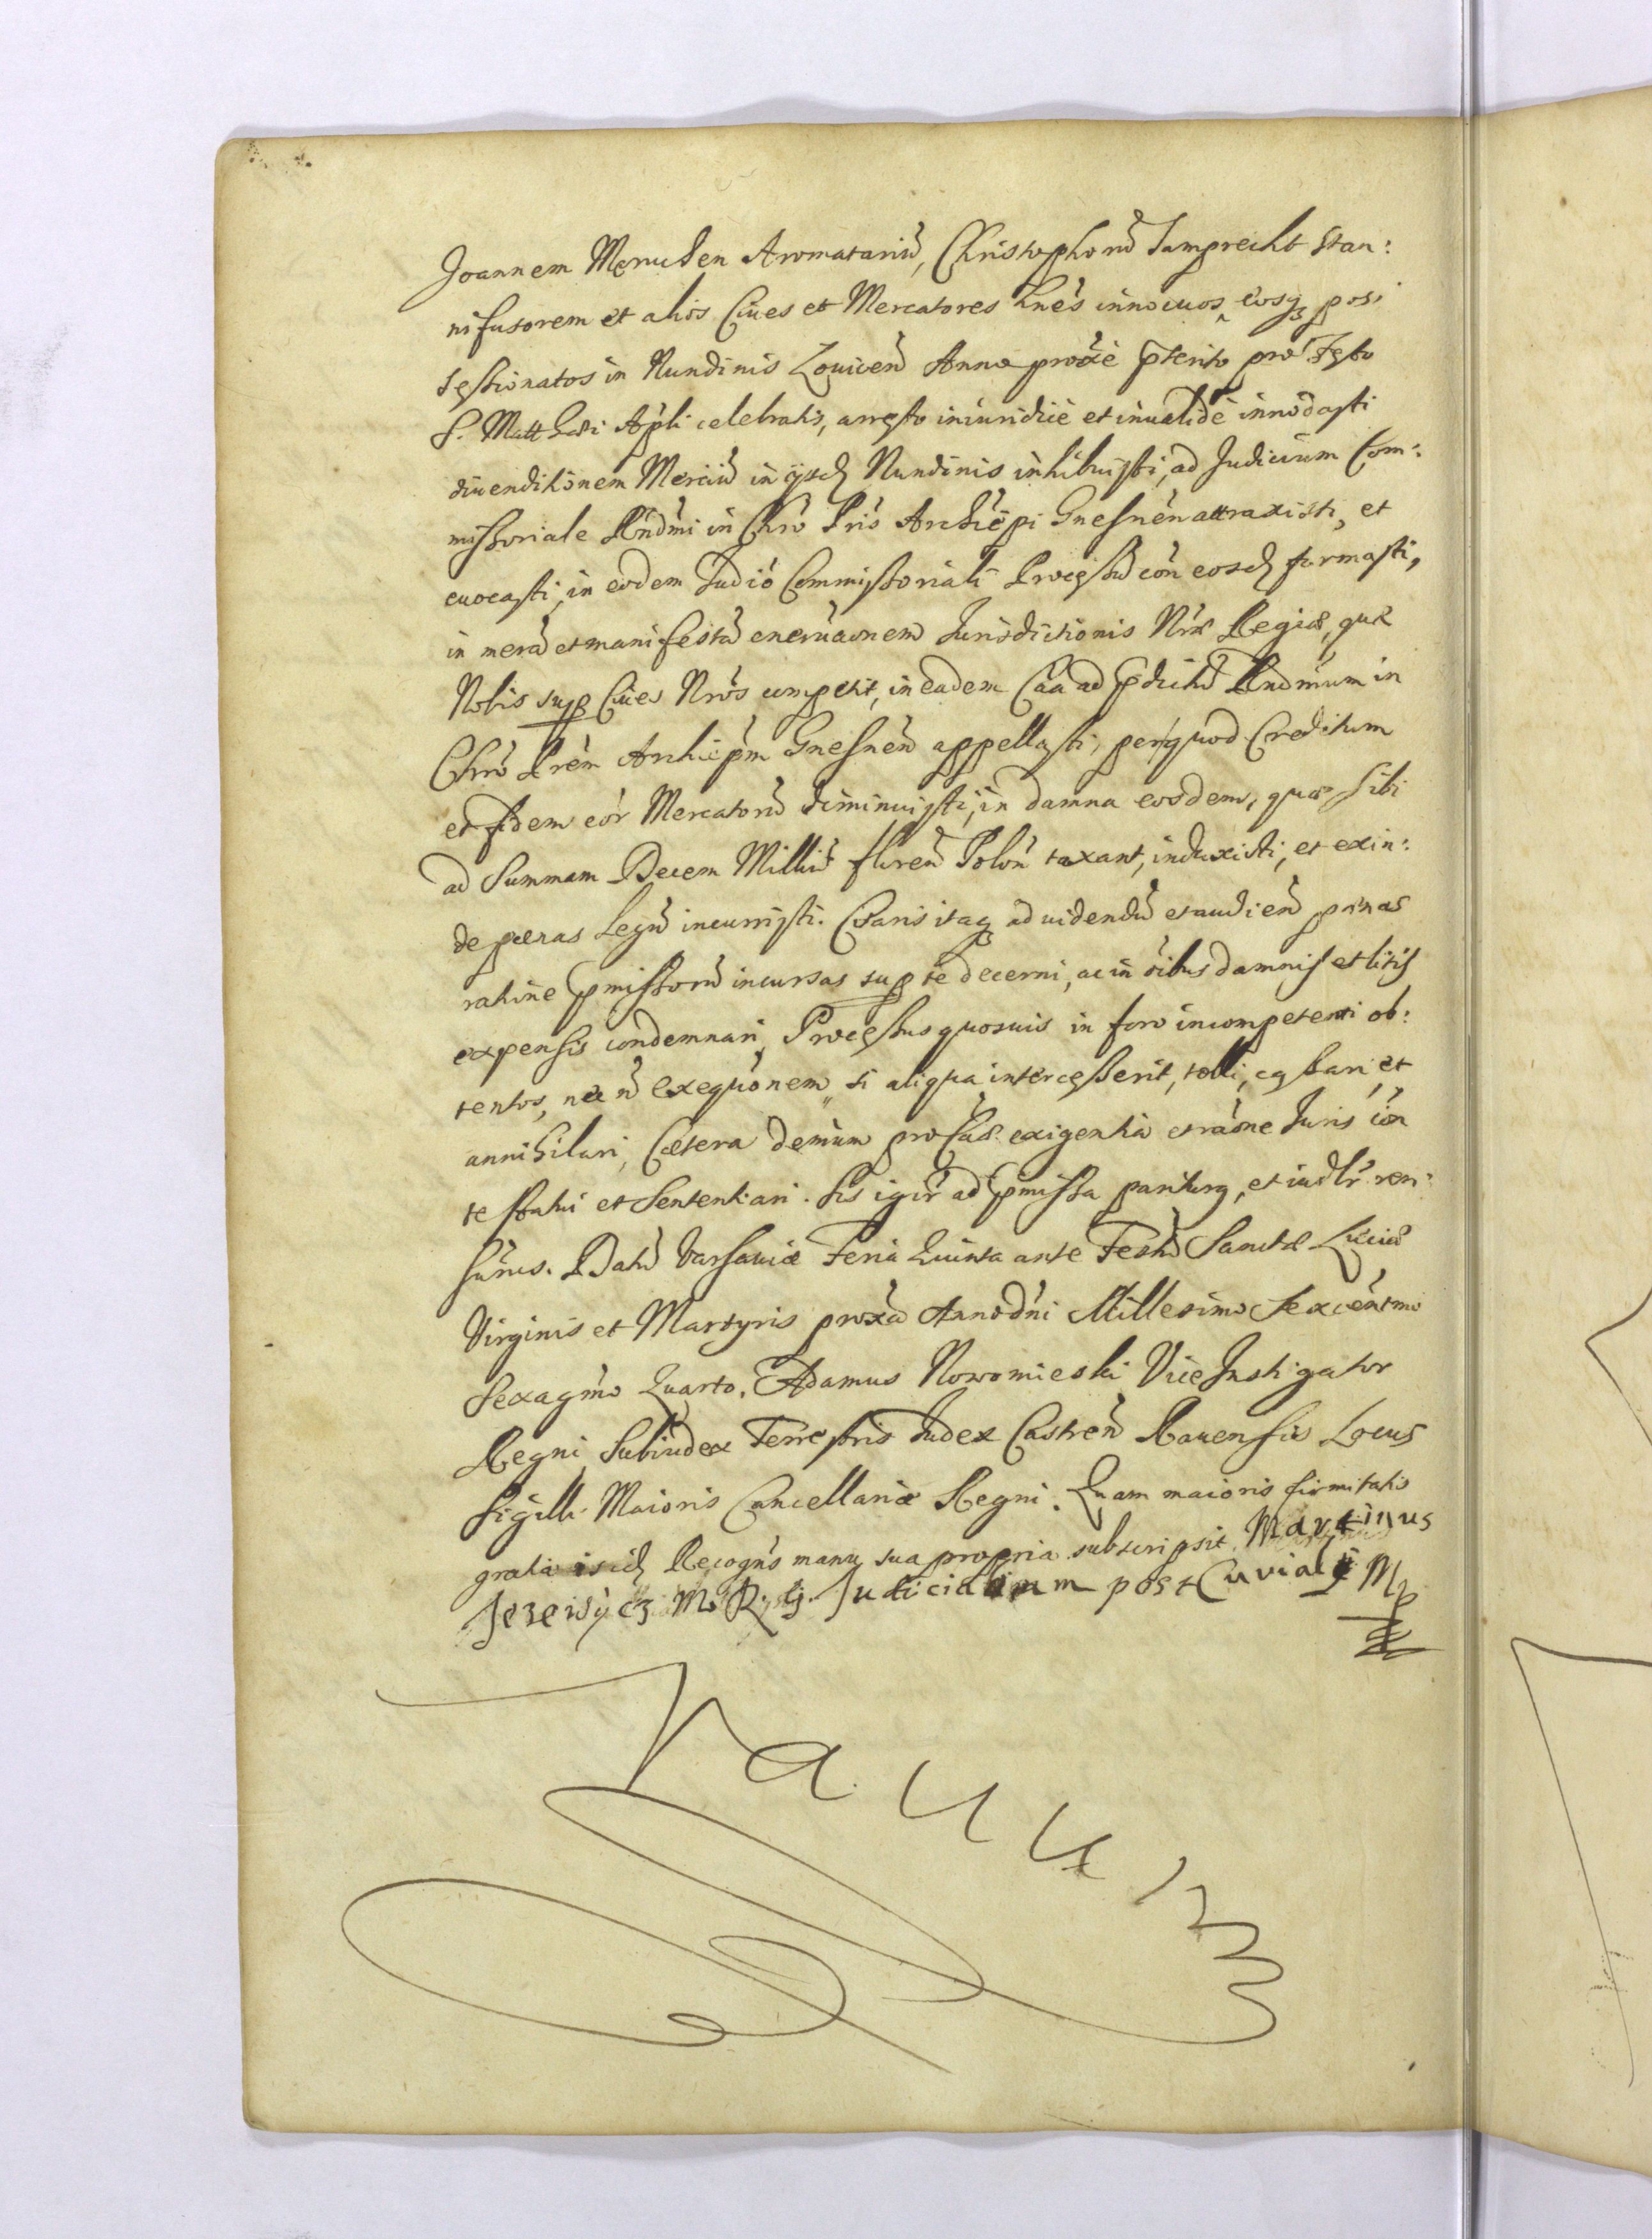 Joannem Menuchen Aromatariũ, Christophorũ Lamprecht Stan:
nifusorem et alios Ciues et Mercatores hnẽs innocuos, eosq₃ pos:
sessionatos in Nundinis Louicen̄ Anno proxẽ p̄terito pro Festo
S. Matthæi Apli celebratis, arresto iniuridicè et inualidè innodasti
diuenditionem Merciũ in ijsd̄ Nundinis inhibuisti, ad Judicium Com:
missoriale Rndmi in Chrõ Pris Archiẽpi Gnesnen̄ attraxisti, et
euocasti, in eodem Judiõ Commissoriali Processũ cõn eosd̄ formasti,
in merã et manifestã eneruãonem Jurisdictionis Nræ Regiæ, quæ
Nobis sup Ciues Nros competit, in eadem Cãa ad p̄dictũ Rndmum in
Chrõ Prẽm Archiepm Gnesnen̄ appellasti, per quod Creditum
et fidem eor̄ Mercatorũ diminuisti, in damna eosdem, quæ sibi
ad Summam Decem Milliũ floren̄ Polon̄ taxant, induxisti, et exin:
de pœnas Legũ incurristi. Citaris itaq₃ ad uidendũ et audien̄ pœnas
ratione p̄missorũ incursas sup te decerni, ac in õibus damnis et litis
expensis condemnari, Processus quosuis in foro incompetenti ob:
tentos, nec n̄ exequõnem, si aliqua intercesserit, tolli, cassari, et
annihilari, Cætera demum pro Cãæ exigentia et rãone Juris cõn
te statui et Sententiari. Sis igit̄r ad p̄missa pariturq, et iudlr̃ ren:
surus. Datũ Varsauiæ Feria Quinta ante Festũ Sanctæ Luciæ
Virginis et Martyris proxã Anno dni Millesimo Sexcentmo
Sexagmo Quarto. Adamus Nowomieski Vice Instigator
Regni, Subiudex Terrestris Judex Castren̄ Rauensis Locus
Sigilli Maioris Cancellariæ Regni. Quam maioris firmitatis
gratia isid̄ Recogns manu sua propria subscripsit. Martinus
Jerewycz M. R. Judicialium post Curialis Mp